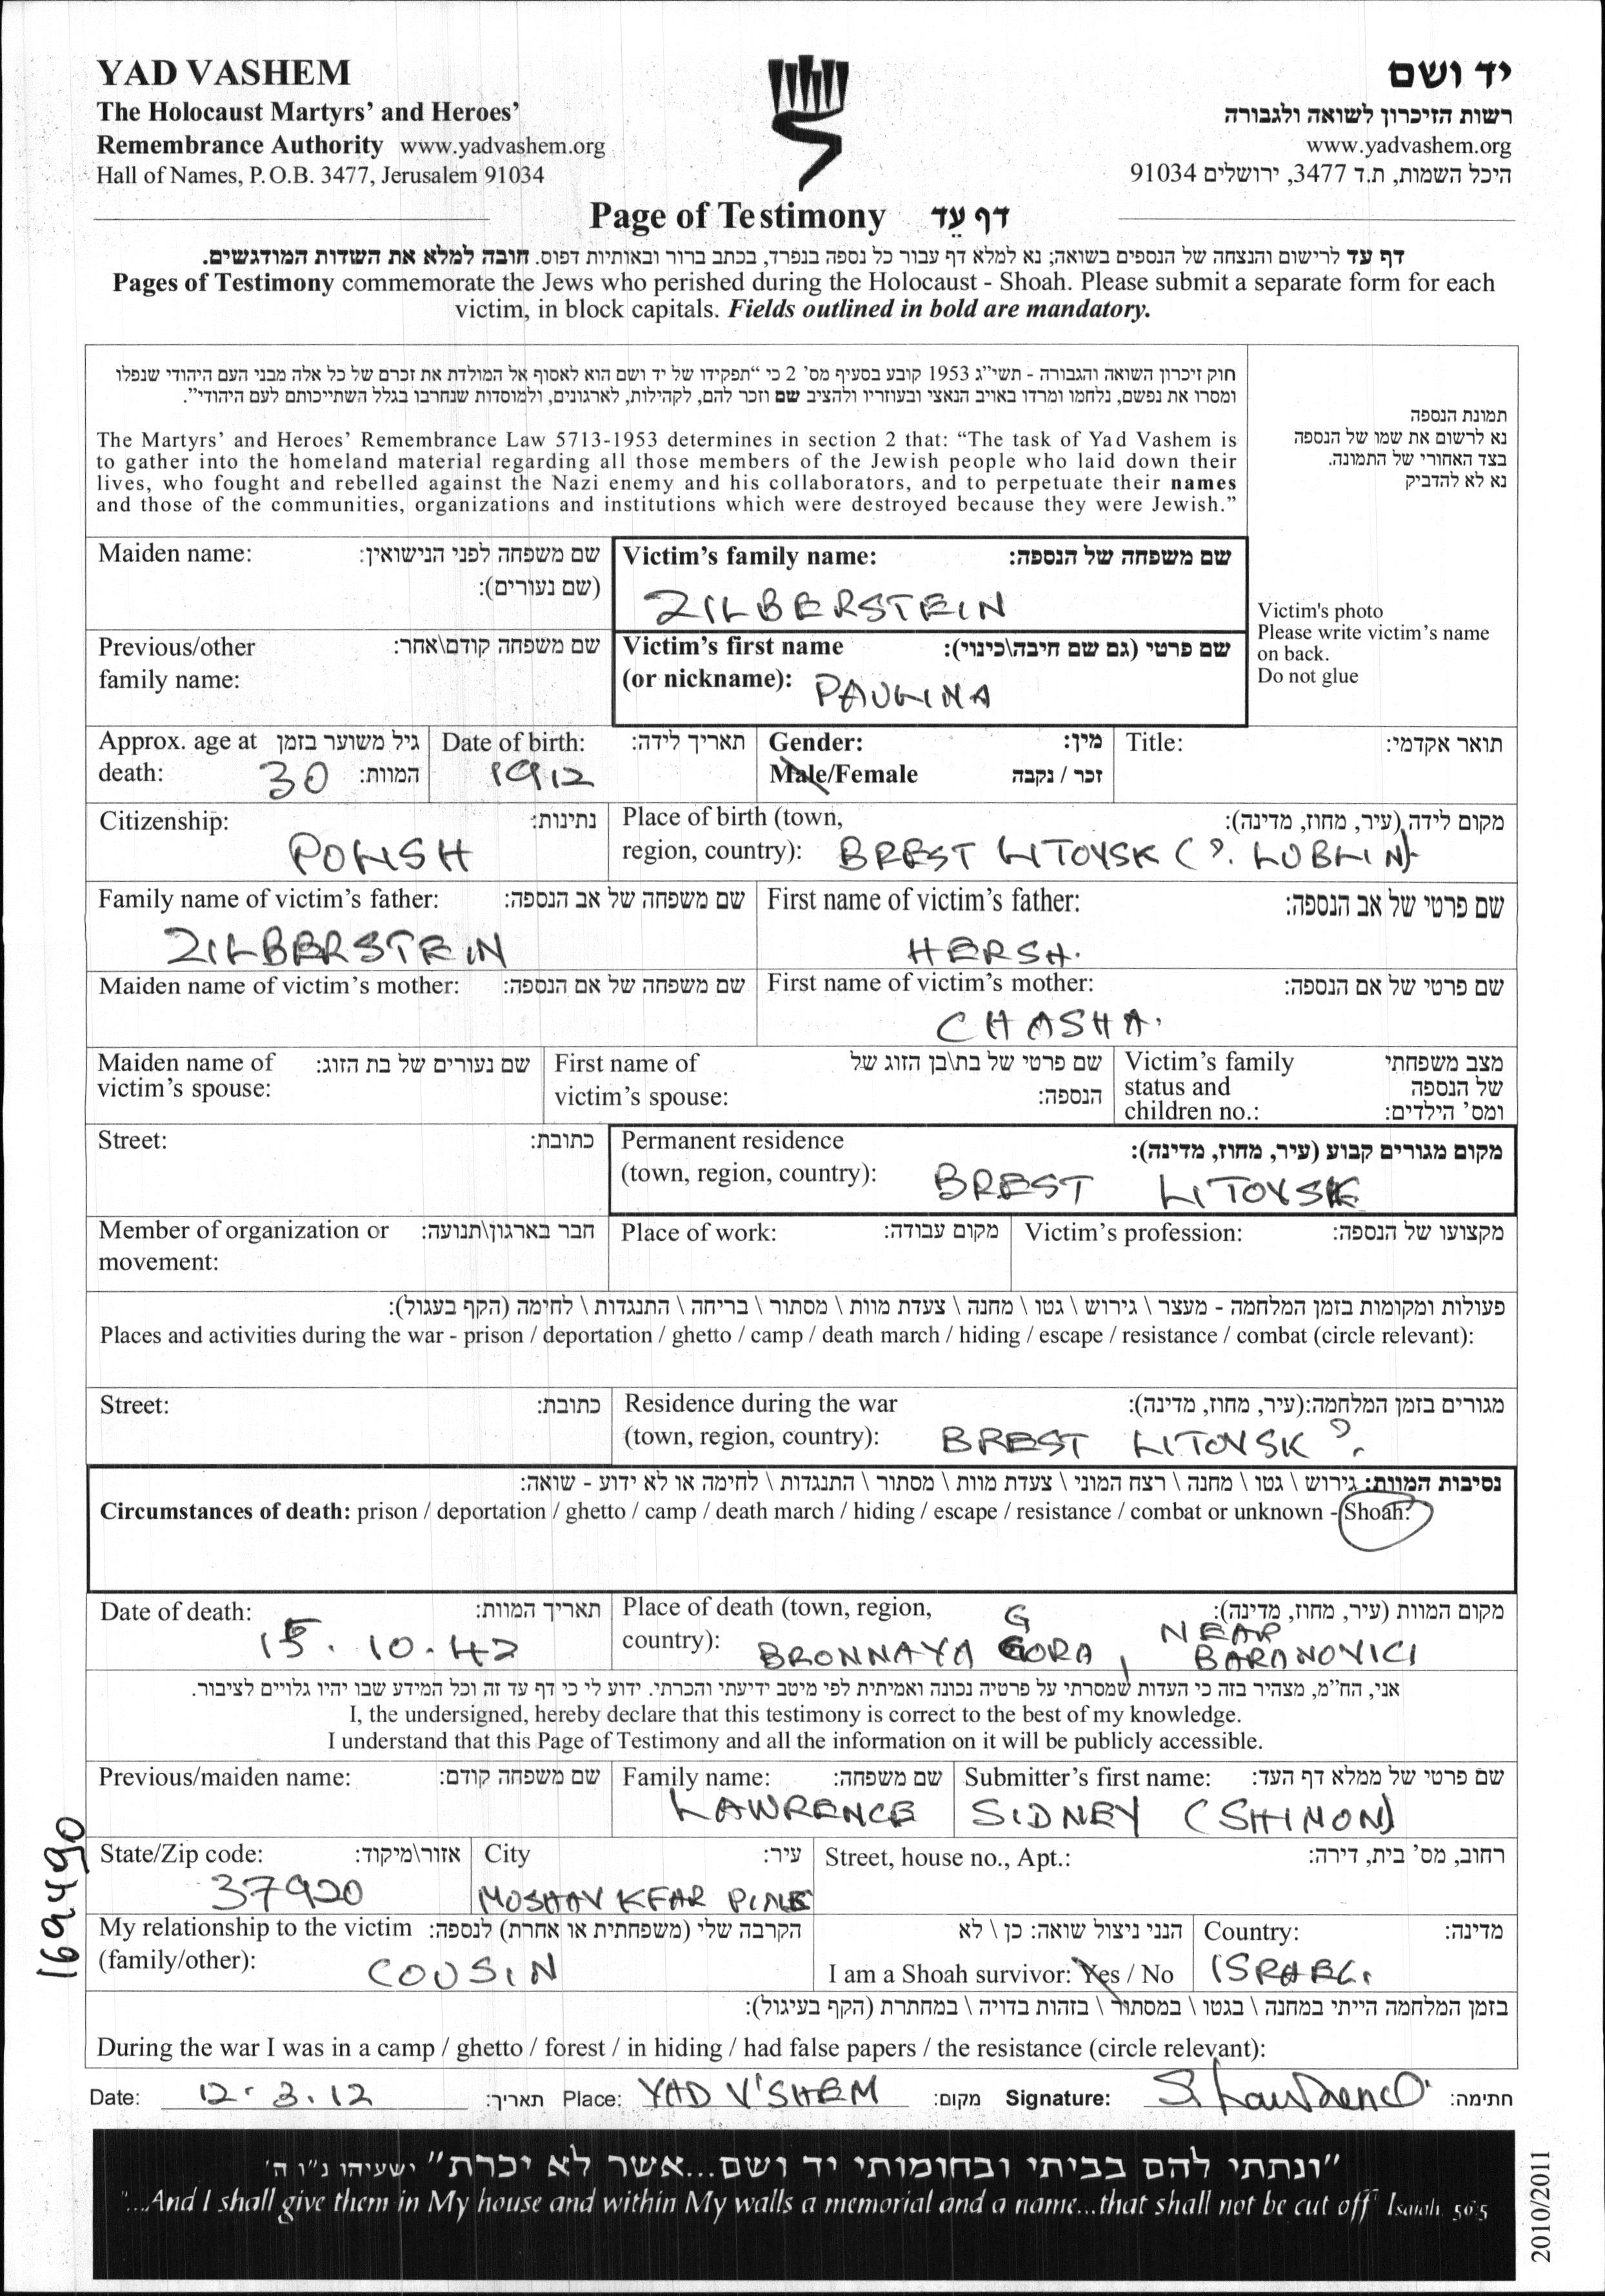 YAD VASHEM
The Holocaust Martyrs' and Heroes'
Remembrance Authority www.yadvashem.org
Hall of Names, P.O.B. 3477, Jerusalem 91034
יד ושם
רשות הזיכרון לשואה ולגבורה
www.yadvashem.org
היכל השמות, ת.ד 3477, ירושלים 91034
Page of Testimony דף עֵד
דף עד לרישום והנצחה של הנספים בשואה; נא למלא דף עבור כל נספה בנפרד, בכתב ברור ובאותיות דפוס. חובה למלא את השדות המודגשים.
Pages of Testimony commemorate the Jews who perished during the Holocaust - Shoah. Please submit a separate form for each
victim, in block capitals. Fields outlined in bold are mandatory.
חוק זיכרון השואה והגבורה - תשי"ג 1953 קובע בסעיף מס' 2 כי "תפקידו של יד ושם הוא לאסוף אל המולדת את זכרם של כל אלה מבני העם היהודי שנפלו
ומסרו את נפשם, נלחמו ומרדו באויב הנאצי ובעוזריו ולהציב שם וזכר להם, לקהילות, לארגונים, ולמוסדות שנחרבו בגלל השתייכותם לעם היהודי".
The Martyrs' and Heroes' Remembrance Law 5713-1953 determines in section 2 that: "The task of Yad Vashem is
to gather into the homeland material regarding all those members of the Jewish people who laid down their
lives, who fought and rebelled against the Nazi enemy and his collaborators, and to perpetuate their names
and those of the communities, organizations and institutions which were destroyed because they were Jewish."
תמונת הנספה
נא לרשום את שמו של הנספה
בצד האחורי של התמונה.
נא לא להדביק
Victim's photo
Please write victim's name
on back.
Do not glue
Maiden name: שם משפחה לפני הנישואין:
(שם נעורים):
Victim's family name: שם משפחה של הנספה:
ZILBERSTEIN
Previous/other שם משפחה קודם\אחר:
family name:
Victim's first name שם פרטי (גם שם חיבה\כינוי):
(or nickname): PAULINA
Approx. age at גיל משוער בזמן
death: 30 המוות:
Date of birth: תאריך לידה:
1912
Gender: מין:
Male/Female זכר / נקבה
Title: תואר אקדמי:
Citizenship: נתינות:
POLISH
Place of birth (town, מקום לידה (עיר, מחוז, מדינה):
region, country): BREST LITOVSK (?. LUBLIN)
Family name of victim's father: שם משפחה של אב הנספה:
ZILBERSTEIN
First name of victim's father: שם פרטי של אב הנספה:
HERSH.
Maiden name of victim's mother: שם משפחה של אם הנספה:
First name of victim's mother: שם פרטי של אם הנספה:
CHASHA.
Maiden name of שם נעורים של בת הזוג:
victim's spouse:
First name of שם פרטי של בת\בן הזוג של
victim's spouse: הנספה:
Victim's family מצב משפחתי
status and של הנספה
children no.: ומס' הילדים:
Street: כתובת:
Permanent residence מקום מגורים קבוע (עיר, מחוז, מדינה):
(town, region, country): BREST LITOVSK
Member of organization or חבר בארגון\תנועה:
movement:
Place of work: מקום עבודה:
Victim's profession: מקצועו של הנספה:
פעולות ומקומות בזמן המלחמה - מעצר \ גירוש \ גטו \ מחנה \ צעדת מוות \ מסתור \ בריחה \ התנגדות \ לחימה (הקף בעגול):
Places and activities during the war - prison / deportation / ghetto / camp / death march / hiding / escape / resistance / combat (circle relevant):
Street: כתובת:
Residence during the war מגורים בזמן המלחמה:(עיר, מחוז, מדינה):
(town, region, country): BREST LITOVSK ?.
נסיבות המוות: גירוש \ גטו \ מחנה \ רצח המוני \ צעדת מוות \ מסתור \ התנגדות \ לחימה או לא ידוע - שואה:
Circumstances of death: prison / deportation / ghetto / camp / death march / hiding / escape / resistance / combat or unknown - Shoah:
Date of death: תאריך המוות:
15.10.42
Place of death (town, region, מקום המוות (עיר, מחוז, מדינה):
country): BRONNAYA GORA, NEAR BARANOVICI
G
אני, הח"מ, מצהיר בזה כי העדות שמסרתי על פרטיה נכונה ואמיתית לפי מיטב ידיעתי והכרתי. ידוע לי כי דף עד זה וכל המידע שבו יהיו גלויים לציבור.
I, the undersigned, hereby declare that this testimony is correct to the best of my knowledge.
I understand that this Page of Testimony and all the information on it will be publicly accessible.
Previous/maiden name: שם משפחה קודם:
Family name: שם משפחה:
LAWRENCE
Submitter's first name: שם פרטי של ממלא דף העד:
SIDNEY (SHIMON)
State/Zip code: אזור\מיקוד:
37920
City עיר:
MOSHAV KFAR PINES
Street, house no., Apt.: רחוב, מס' בית, דירה:
My relationship to the victim הקרבה שלי (משפחתית או אחרת) לנספה:
(family/other): COUSIN
הנני ניצול שואה: כן \ לא
I am a Shoah survivor: Yes / No
Country: מדינה:
ISRAEL.
בזמן המלחמה הייתי במחנה \ בגטו \ במסתור \ בזהות בדויה \ במחתרת (הקף בעיגול):
During the war I was in a camp / ghetto / forest / in hiding / had false papers / the resistance (circle relevant):
Date: 12.3.12 תאריך: Place: YAD V'SHEM מקום: Signature: S. Lawrence חתימה:
"ונתתי להם בביתי ובחומותי יד ושם...אשר לא יכרת" ישעיהו נ"ו ה'
"...And I shall give them in My house and within My walls a memorial and a name...that shall not be cut off" Isaiah 56:5
1694490
2010/2011